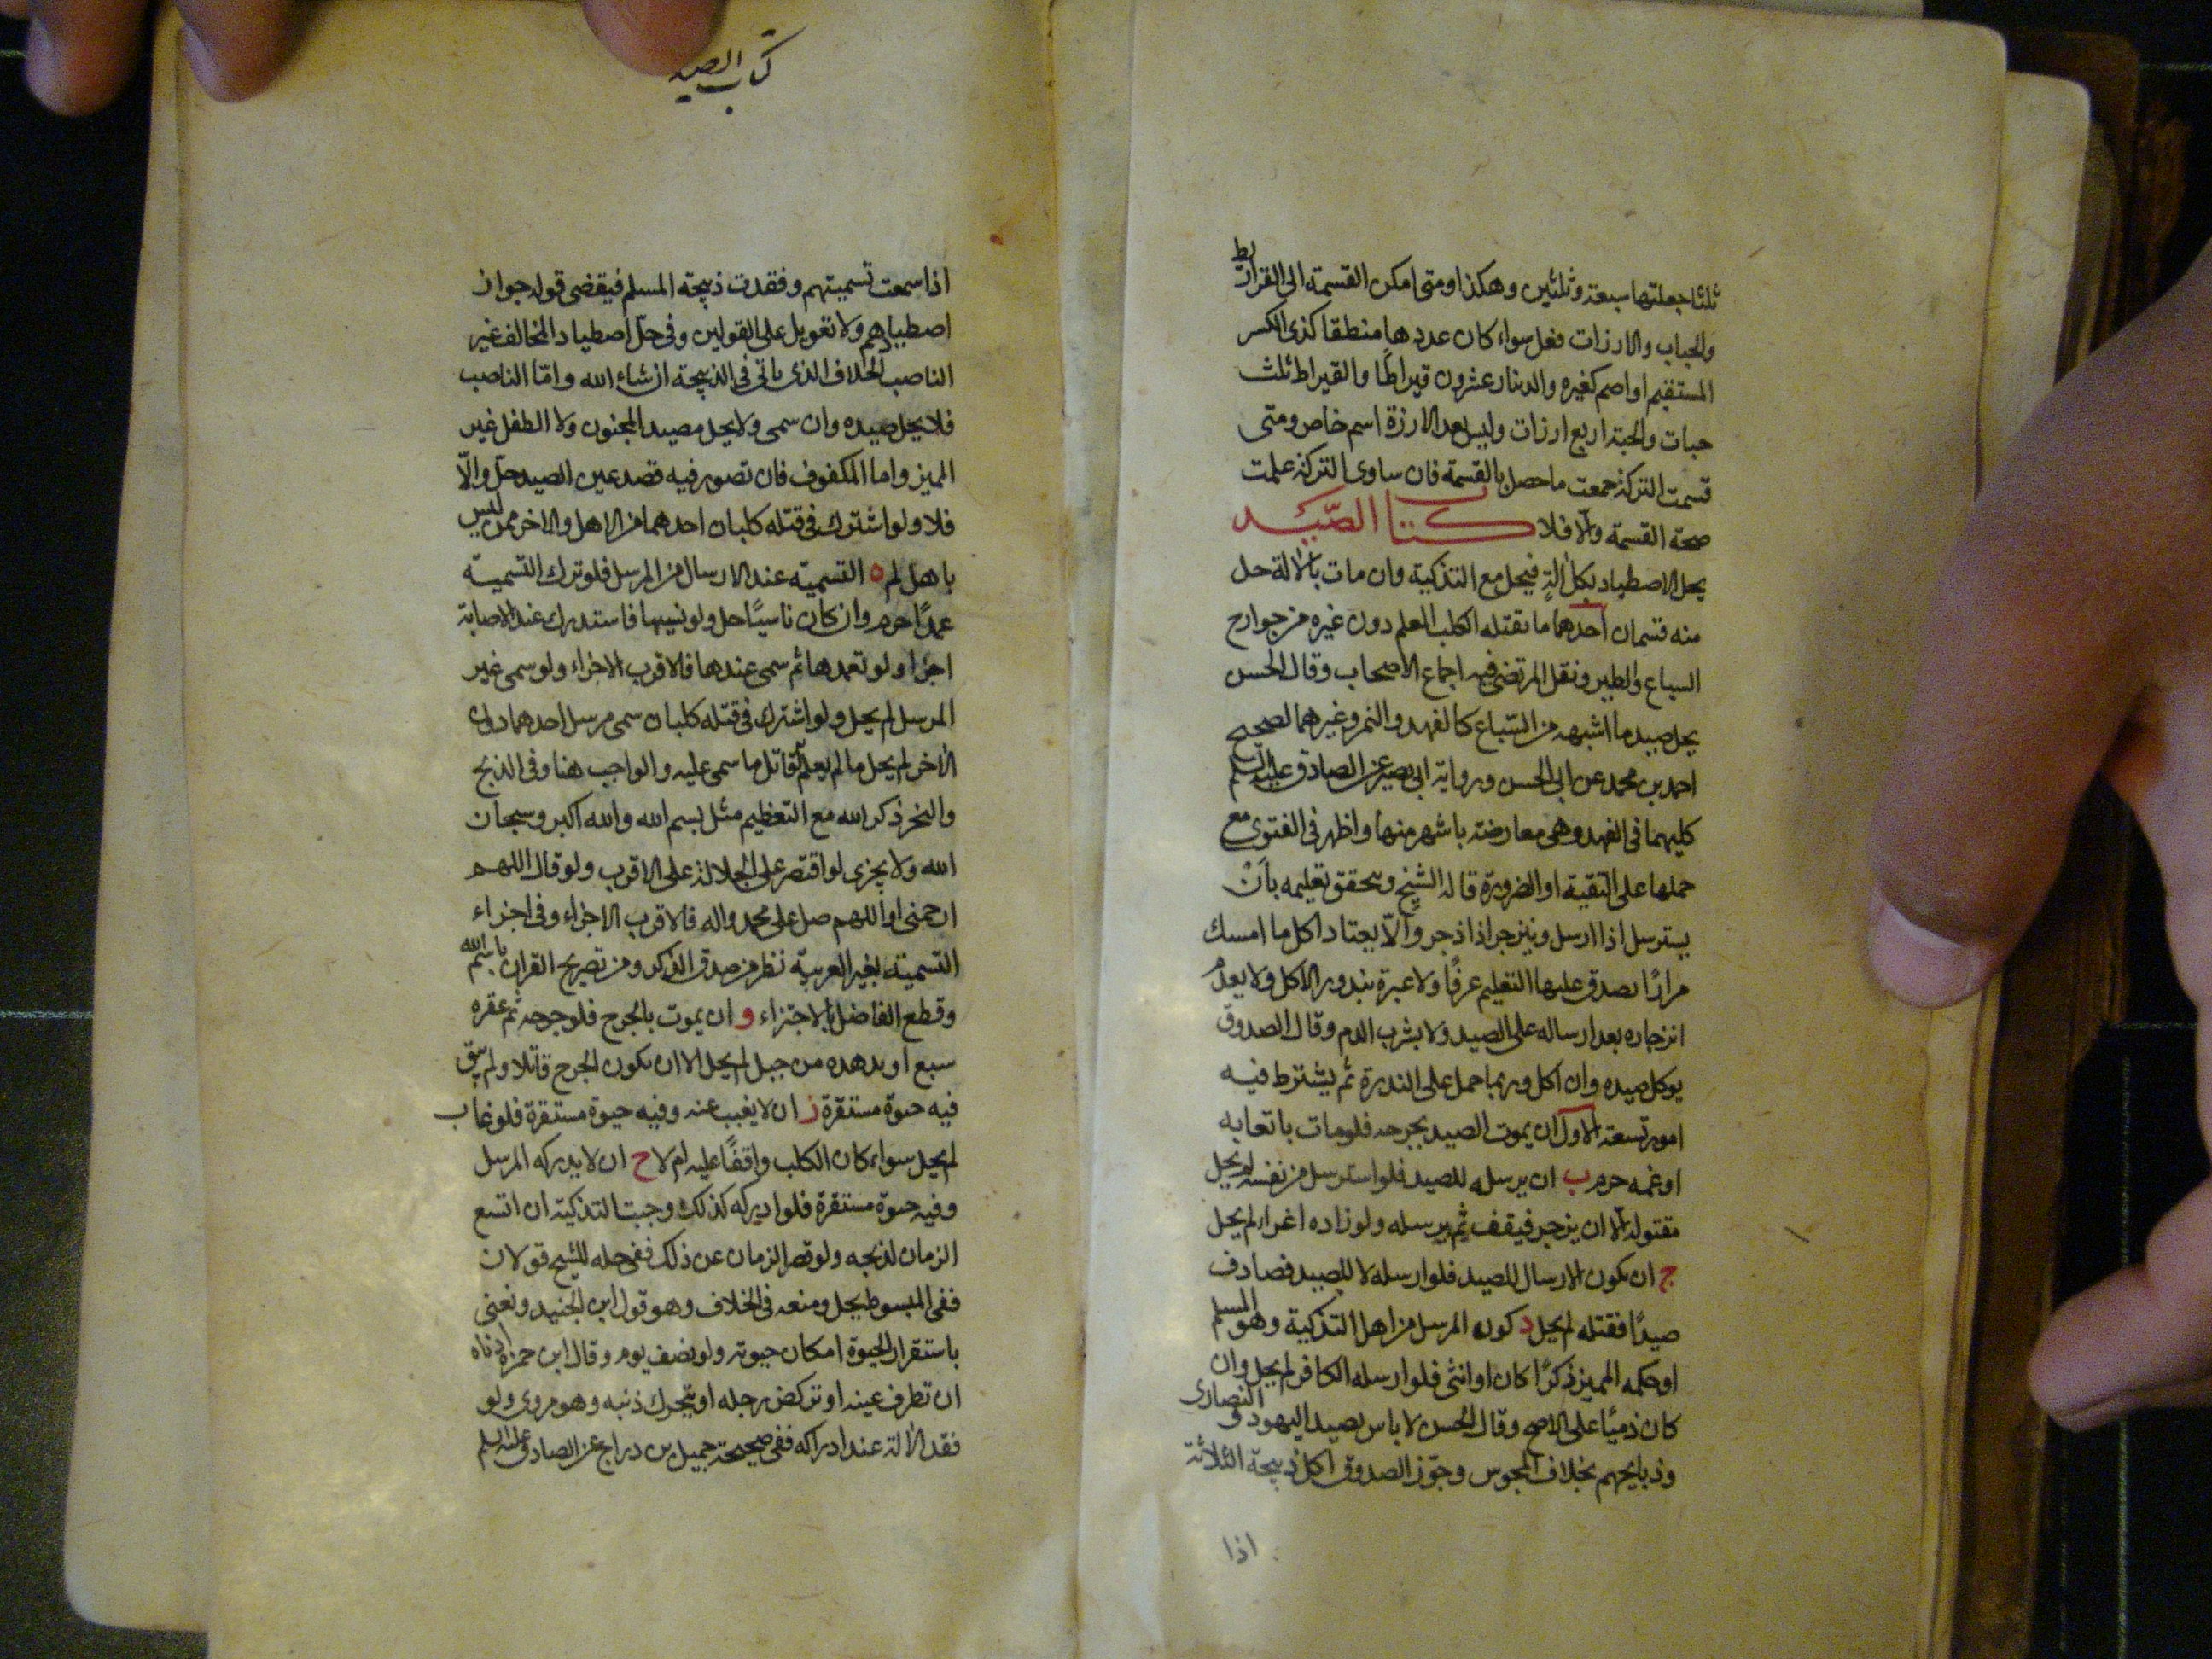 ثلثا جعلتها سبعة وثلثين وهكذا ومتى امكن القسمة الى القراريط
والحباب والارزات فعل سواء كان عددها منطقا كذى الكسر
المستقيم او اصم كغيره والدينار عشرون قيراطًا والقيراط ثلث
حبات والحبة اربع ارزات وليس بعد الارزة اسم خاص ومتى
قسمت التركة جمعت ما حصل بالقسمة فان ساوى التركة علمت
صحة القسمة والا فلا كتاب الصَّيد
يحل الاصطياد بكل الةٍ فيحل مع التذكية وان مات بالالة حل
منه قسمان احدهما ما يقتله الكلب المعلم دون غيره من جوارح
السباع والطير ونقل المرتضى فيه اجماع الاصحاب وقال الحسن
يحل صيد ما اشبهه من السّباع كالفهد والنمر وغيرهما لصحيح
احمد بن محمد عن ابى الحسن ورواية ابى بصير عن الصادق عليه السلم
كليهما فى الفهد وهى معارضة باشهر منها واظهر فى الفتوى مع
حملها على التقية او الضرورة قاله الشيخ ويتحقق تعليمه بأن
يسترسل اذا ارسل وينزجر اذا زجر والّا يعتاد اكل ما امسك
مرارًا يصدق عليها التعليم عرفًا ولا عبرة بندور الاكل ولا بعدم
انزجاره بعد ارساله على الصيد ولا بشرب الدم وقال الصدوق
يوكل صيده وان اكل وربما حمل على الندرة ثم يشترط فيه
امور تسعة الاول ان يموت الصيد بجرحه فلو مات باتعابه
او غمه حرم ب ان يرسله للصيد فلو استرسل من نفسه لم يحل
مقتوله الا ان يزجر فيقف ثم يرسله ولو زاده اغراء لم يحل
ج ان يكون الارسال للصيد فلو ارسله لا للصيد فصادف
صيدًا فقتله لم يحل د كون المرسل من اهل التذكية وهو المسلم
او حكمه المميز ذكرًا كان او انثى فلو ارسله الكافر لم يحل وان
كان ذميًا على الاصح وقال الحسن لا باس بصيد اليهود و النصارى
وذبايحهم بخلاف المجوس وجوّز الصدوق اكل ذبيحة الثلاثة
اذا
كتاب الصيد
اذا سمعت تسميتهم وفقدت ذبيحة المسلم فيقضى قوله جواز
اصطيادهم ولا تعويل على القولين وفى حل اصطياد المخالف غير
الناصب الخلاف الذى ياتى فى الذبيحة ان شاء الله وامّا الناصب
فلا يحل صيده وان سمى ولا يحل مصيد المجنون ولا الطفل غير
المميز واما المكفوف فان تصور فيه قصد عين الصيد حل والّا
فلا ولو اشترك فى قتله كلبان احدهما من الاهل والاخر ممن ليس
باهل لم ه التسمية عند الارسال من المرسل فلو ترك التسمية
عمدًا حرم وان كان ناسيًا حل ولو نسيها فاستدرك عند الاصابة
اجزا ولو تعمدها ثم سمى عندها فالاقرب الاجزاء ولو سمى غير
المرسل لم يحل ولو اشترك فى قتله كلبان سمى مرسل احدهما دون
الاخر لم يحل ما لم يعلم قاتل ما سمى عليه والواجب هنا وفى الذبح
والنحر ذكر الله مع التعظيم مثل بسم الله والله اكبر وسبحان
الله ولا يجزى لو اقتصر على الجلالة على الاقرب ولو قال اللهم
ارحمنى او اللهم صل على محمد واله فالاقرب الاجزاء وفى اجزاء
التسمية بغير العربية نظر من صدق الذكر ومن تصريح القران باسم الله
وقطع الفاضل بالاجتزاء و ان يموت بالجرح فلو جرحه ثم عقره
سبع او بدهده من جبل لم يحل الا ان يكون الجرح قاتلا ولم يبق
فيه حيوة مستقرة ز ان لا يغيب عنه وفيه حيوة مستقرة فلو غاب
لم يحل سواء كان الكلب واقفًا عليه ام لا ح ان لا يدركه المرسل
وفيه حيوة مستقرة فلو ادركه كذلك وجبت التذكية ان اتسع
الزمان لذبحه ولو قصر الزمان عن ذلك ففى حله للشيخ قولان
ففى المبسوط يحل ومنعه فى الخلاف وهو قول ابن الجنيد ونعنى
باستقرار الحيوة امكان حيوته ولو نصف يوم وقال ابن حمزة ادناه
ان تطرف عينه او تركض رجله او يتحرك ذنبه وهو مروى ولو
فقد الالة عند ادراكه ففى صحيحة جميل بن دراج عن الصادق عليه السلم